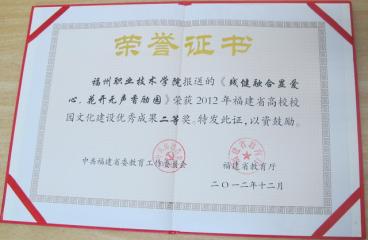 荣誉证书
福州职业技术学院报送的《残健融合显爱
心，花开无声香励园》荣获2012年福建省高校校
园文化建设优秀成果二等奖。特发此证，以资鼓励。
中共福建省委教育工作委员会
福建省教育厅
二〇一二年十二月